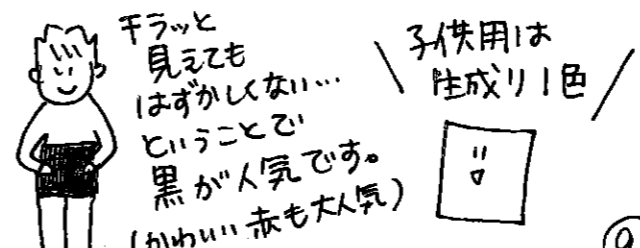 チラッと
見えても
はずかしくない…
ということで
黒が人気です。
(かわいい赤も大人気)
子供用は
生成り1色